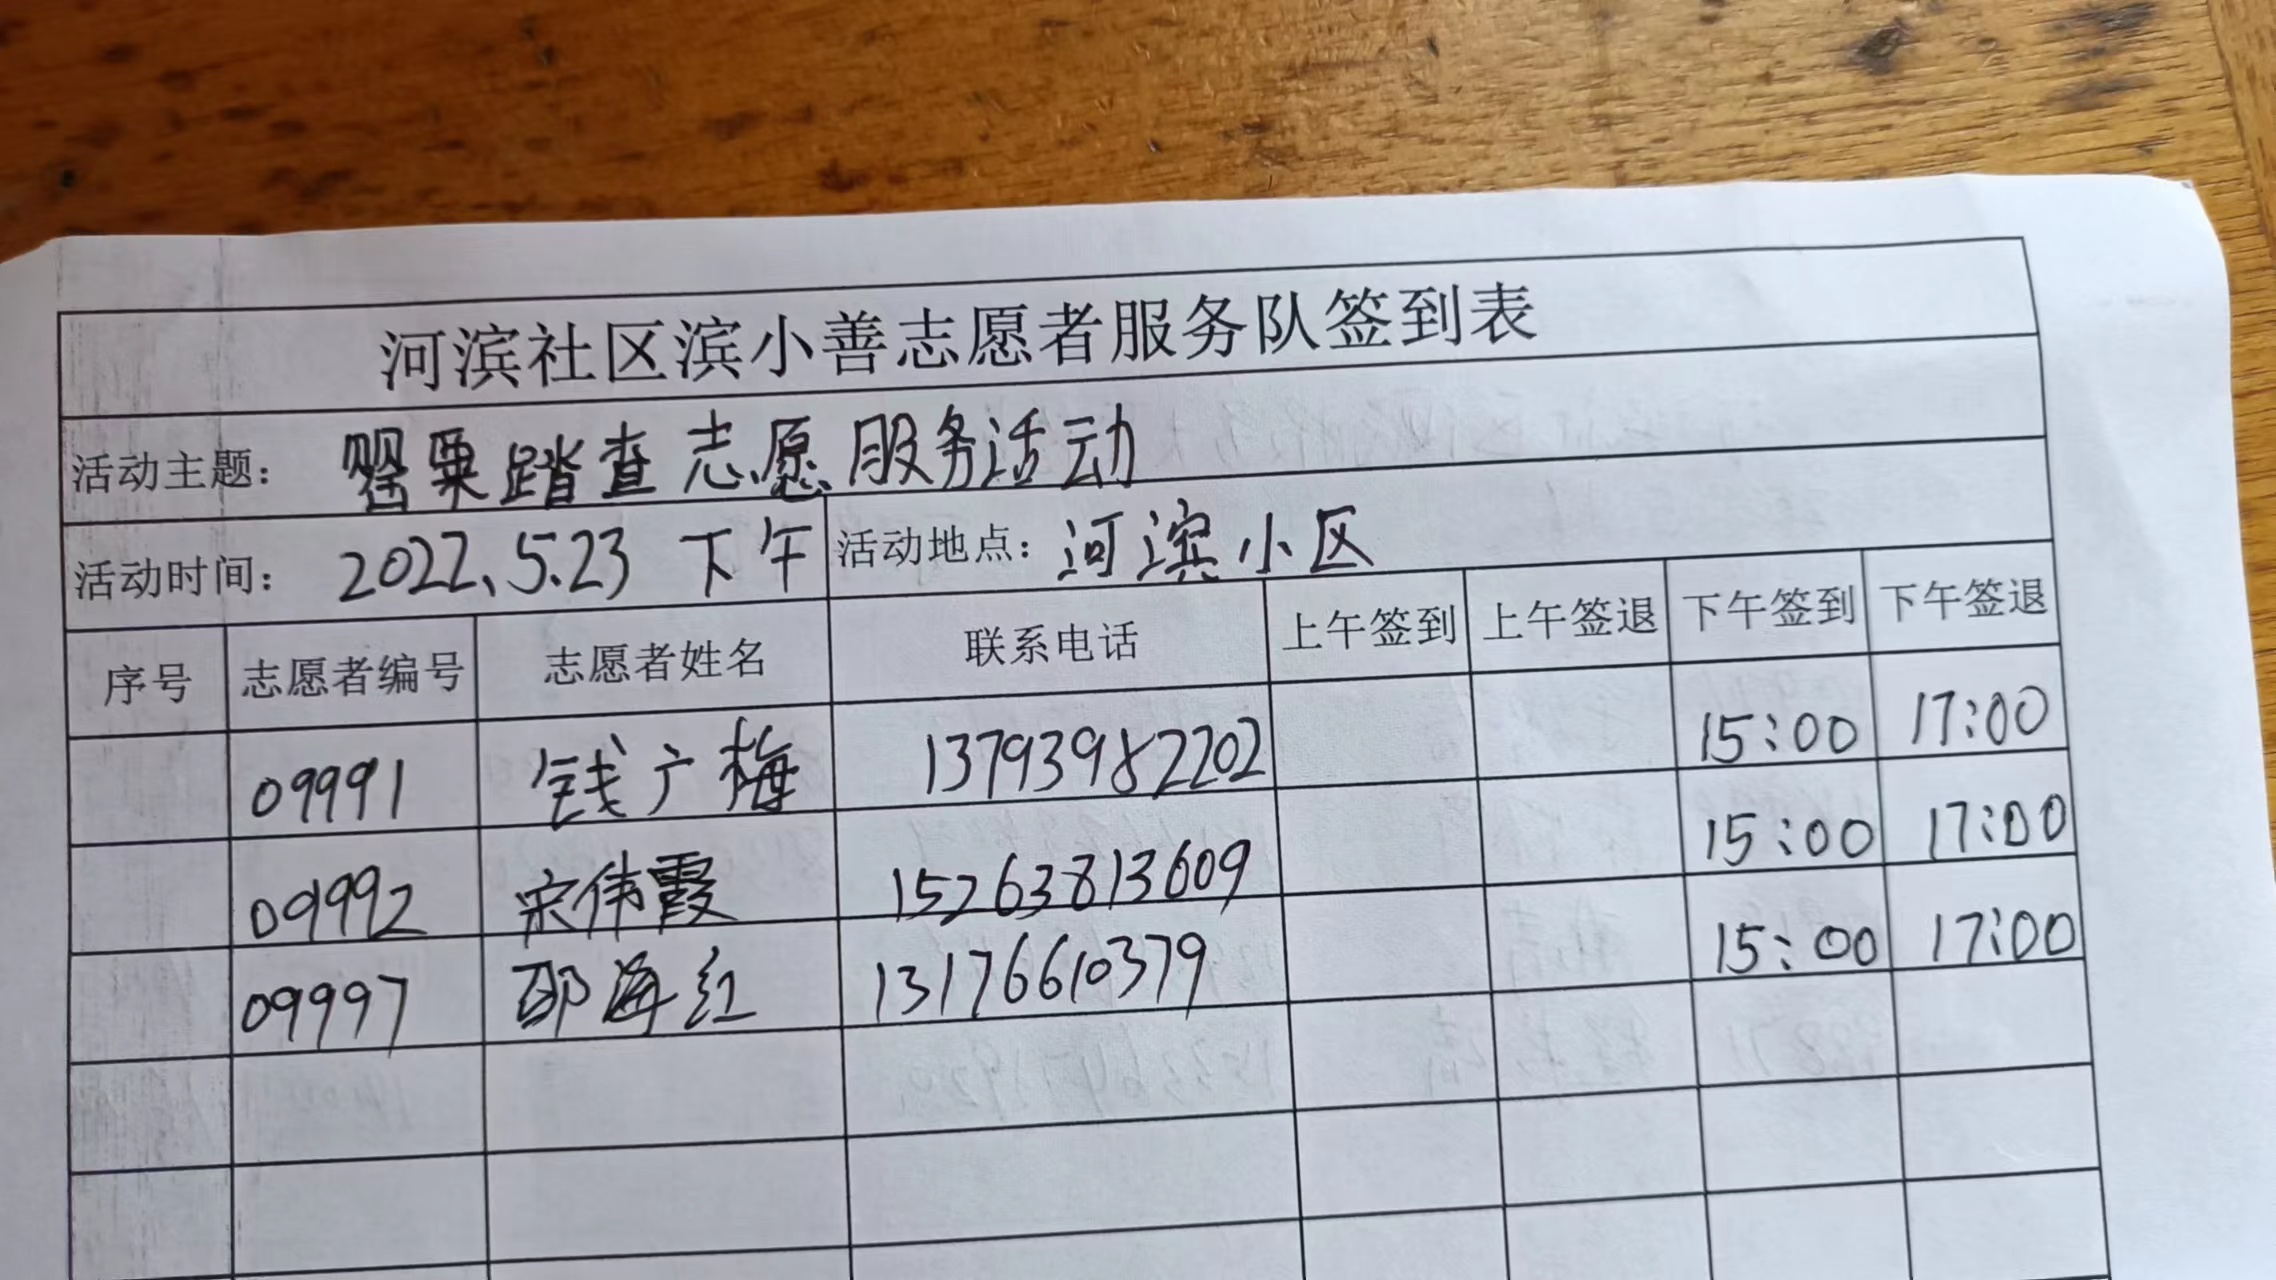 河滨社区滨小善志愿者服务队签到表
活动主题： 罂粟踏查志愿服务活动
活动时间： 2022、5.23 下午 活动地点： 河滨小区
序号 志愿者编号 志愿者姓名 联系电话 上午签到 上午签退 下午签到 下午签退
09991 钱广梅 13793982202 15:00 17:00
09992 宋伟霞 15263813609 15:00 17:00
09997 邵海红 13176610379 15:00 17:00